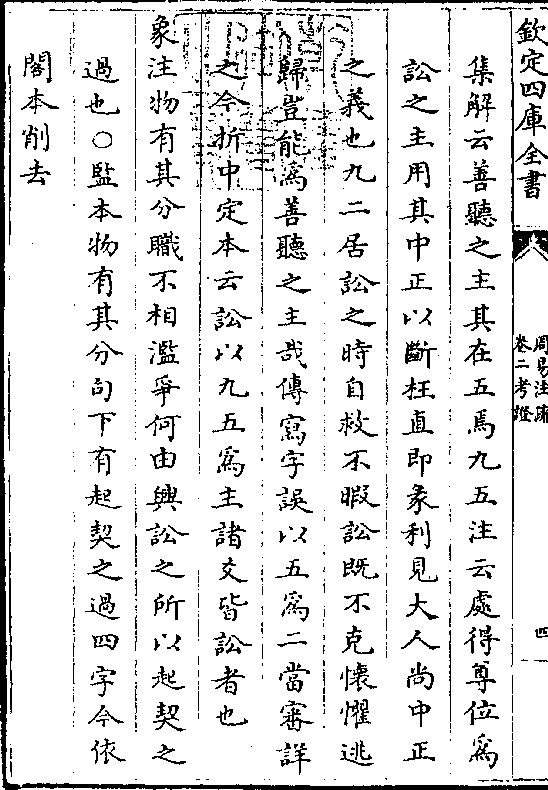 欽定四庫全書
周易注疏
卷二考證
四
集解云善聽之主其在五焉九五注云處得尊位為
訟之主用其中正以斷枉直即彖利見大人尚中正
之義也九二居訟之時自救不暇訟既不克懷懼逃
歸豈能為善聽之主哉傳寫字誤以五為二當審詳
之今折中定本云訟以九五為主諸爻皆訟者也
象注物有其分職不相濫爭何由興訟之所以起契之
過也○監本物有其分句下有起契之過四字今依
閣本削去